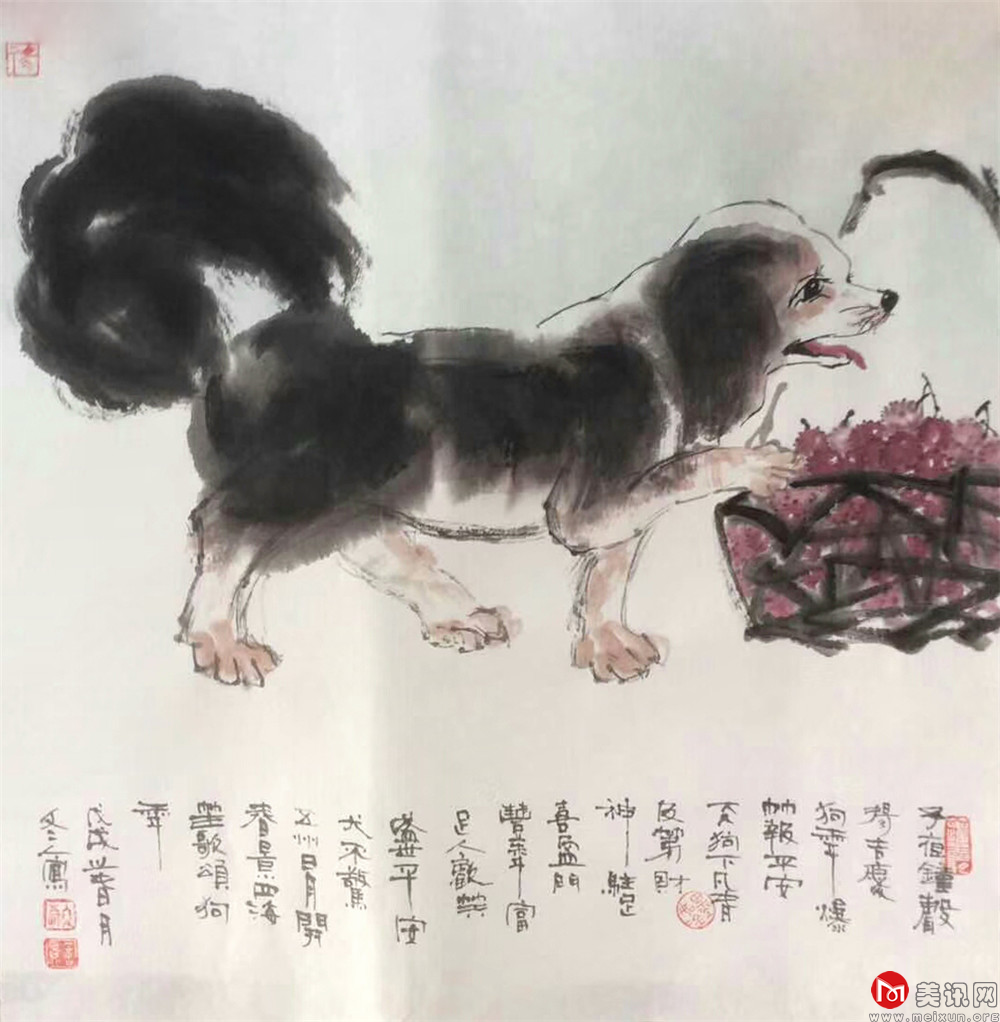 子夜鐘聲
揚吉慶
狗年爆
竹報平安
天狗下凡春
及第財
神駐足
喜盈門
豐年富
足人歡笑
盛世平安
犬不驚
五州日月開
春景四海
笙歌頌狗
年
戊戌 春月
美讯网
www.meixun.org